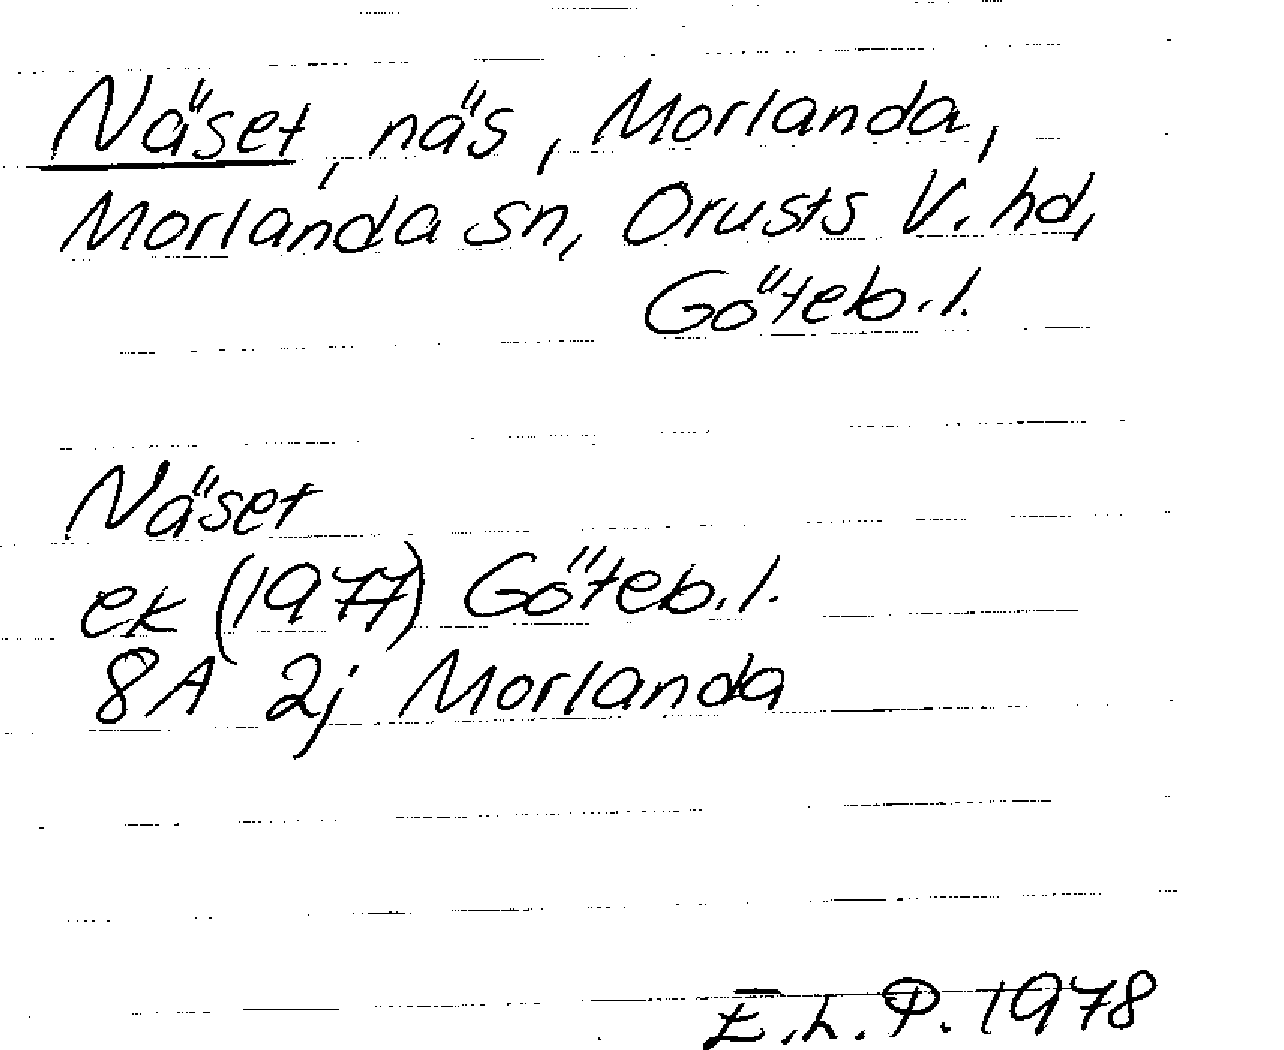 Näset, näs, Morlanda,
Morlanda sn, Orusts V. hd,
Göteb. l.
Näset
ek (1977) Göteb. l.
8A 2j Morlanda
E. L. P. 1978